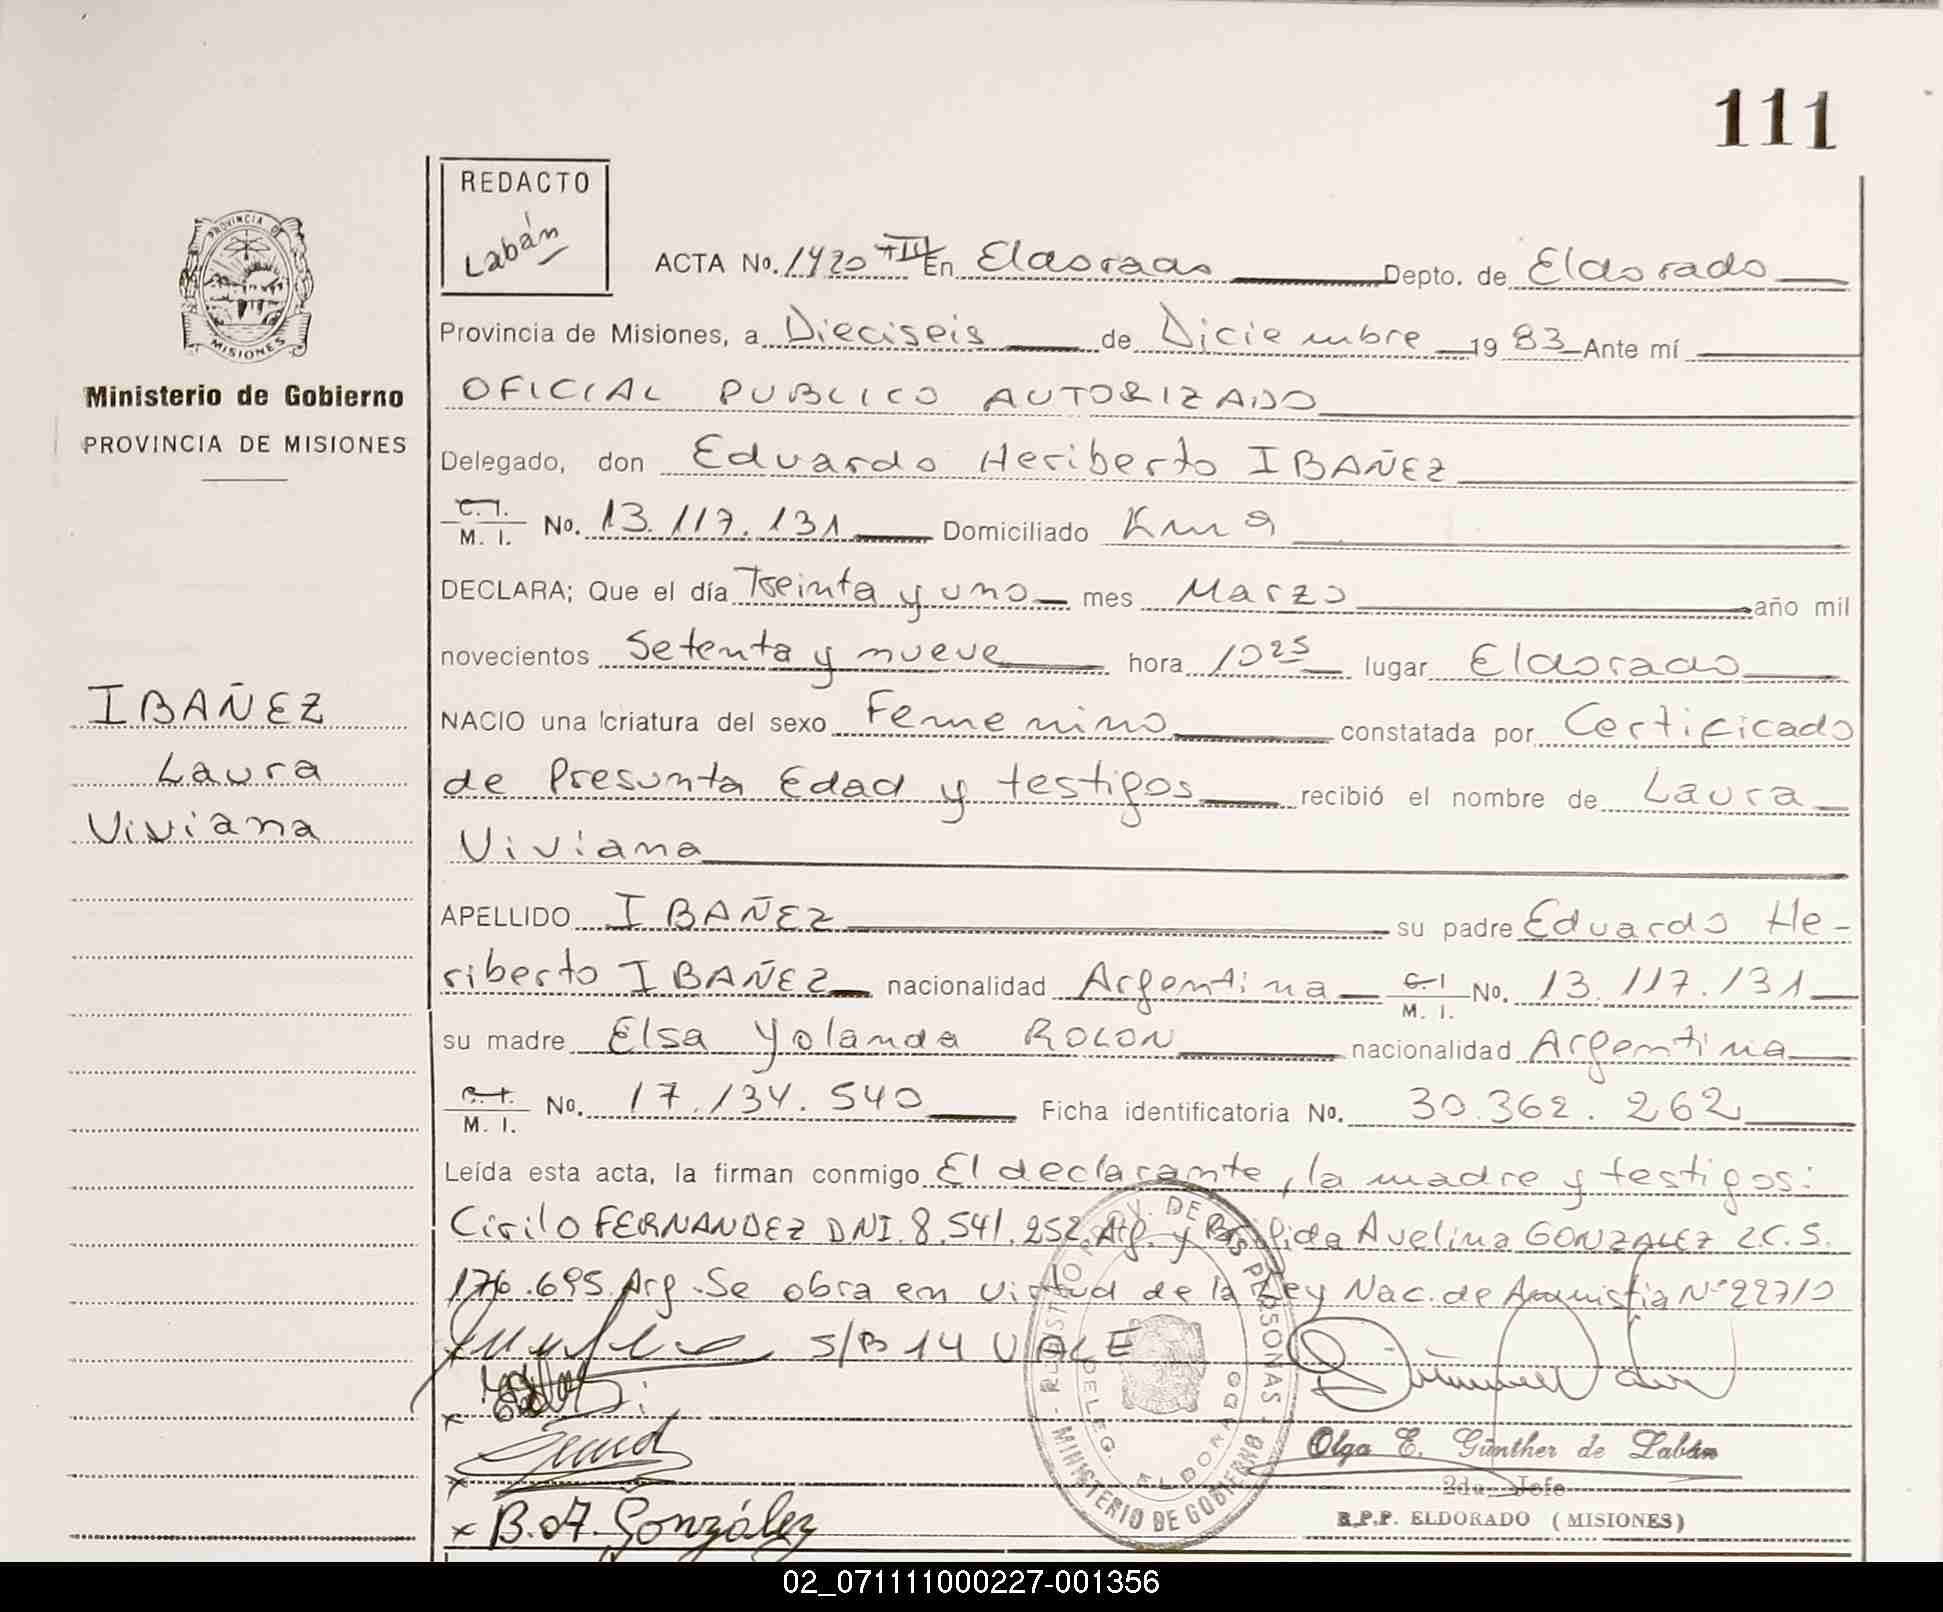 111
REDACTO
Labán
ACTA No. 1420 TºIII En Eldorado Depto. de Eldorado
Provincia de Misiones, a Dieciseis de Diciembre 19 83 Ante mí
OFICIAL PUBLICO AUTORIZADO
Delegado, don Eduardo Heriberto IBAÑEZ
C. I.
M. I. No. 13.117.131 Domiciliado Km 9
DECLARA; Que el día Treinta y uno mes Marzo año mil
novecientos Setenta y nueve hora 10 25 lugar Eldorado
NACIO una criatura del sexo Femenino constatada por Certificado
de Presunta Edad y testigos recibió el nombre de Laura
Viviana
APELLIDO IBAÑEZ su padre Eduardo He-
riberto IBAÑEZ nacionalidad Argentina C. I. M. I. No. 13.117.131
su madre Elsa Yolanda ROLON nacionalidad Argentina
C. I.
M. I. No. 17.134.540 Ficha identificatoria No. 30.362.262
Leída esta acta, la firman conmigo El declarante, la madre y testigos:
Cirilo FERNANDEZ DNI. 8.541.252. Arg. y Avelina GONZALEZ L.C. 5.
176.695. Arg. Se obra en virtud de la Ley Nac. de Amnistia Nº 22710
S/B 14 VALE
B. A. González
PROVINCIA DE
MISIONES
Ministerio de Gobierno
PROVINCIA DE MISIONES
IBAÑEZ
Laura
Viviana
REGISTRO PROV. DE LAS PERSONAS
DELEG. ELDORADO
MINISTERIO DE GOBIERNO
Olga E. Günther de Labán
2da. Jefe
R.P.P. ELDORADO (MISIONES)
02_071111000227-001356